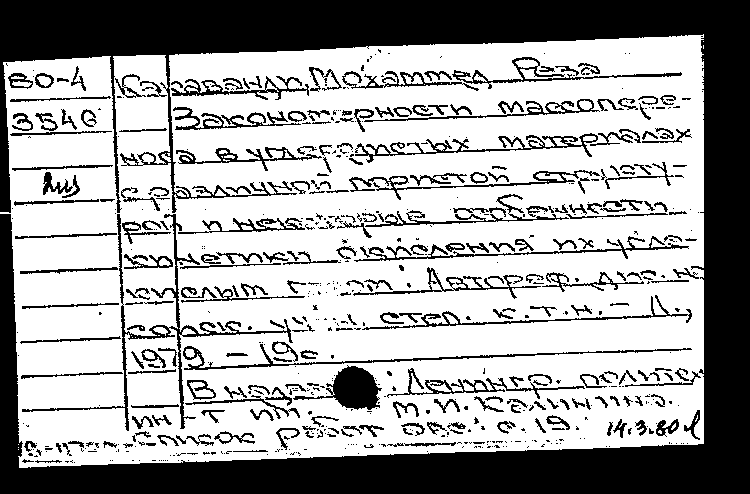 80-4 Кахаванди, Мохаммед Реза
3546 Закономерности массопере-
носа в углеродистых материалах
с различной пористой структу-
рой и некоторые особенности
кинетики окисления их угле-
кислым газом: Автореф. дис. на
соиск. учен. степ. к.т.н. - Л.,
1979. - 19 с.
В надзаг.: Ленингр. политех
ин-т им. М.И. Калинина.
Список работ авт.: с. 19. 14.3.80